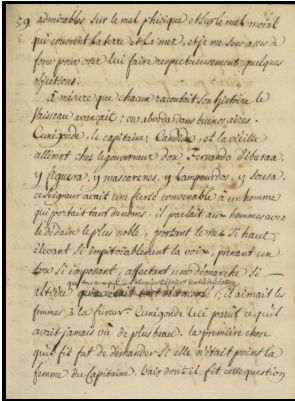 29 admirables sur le mal phisique et sur le mal moral
qui couvrent la terre et la mer, et je me sens assés de
force pour oser lui faire respectueusement quelques
objections.
à mesure que chacun racontait son histoire le
Vaisseau avançait: on aborda dans buenos aires.
Cunégonde, le capitaine, Candide, et la vieille
allèrent chez le gouverneur don Fernando d'ibaraa,
y figueora, y mascarenes, y Lampourdos, y sousa.
ce seigneur avait une fierté convenable à un homme
qui portait tant de noms. il parlait aux hommes avec
le dédain le plus noble, portant le nez si haut,
élevant si impitoiablement la voix, prenant un
ton si imposant, affectant une démarche si
altière il aimait les
femmes à la fureur. Cunégonde lui parut ce qu'il
avait jamais vu de plus beau. la première chose
qu'il fit fut de demander si elle n'était point la
femme du Capitaine. l'air dont il fit cette question